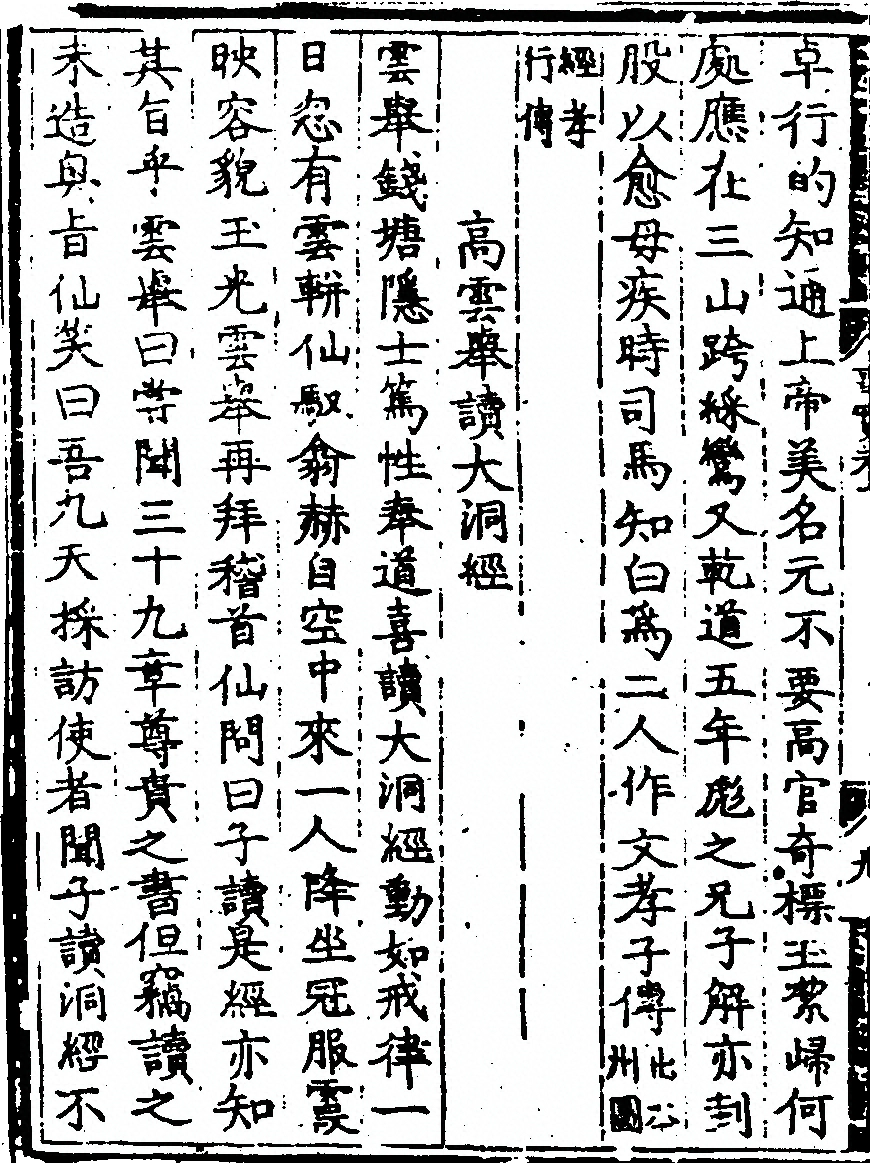 卓行的知通上帝美名元不要高官奇標玉籍歸何
處應在三山跨綵鸞又乾道五年彪之兄子解亦刲
股以愈母疾時司馬知白爲二人作文孝子傳出台
州圖
經孝
行傳
高雲舉讀大洞經
雲舉錢塘隱士篤性奉道喜讀大洞經動如戒律一
日忽有雲軿仙馭翕赫自空中來一人降坐冠服震
映容貌玉光雲舉再拜稽首仙問曰子讀是經亦知
其旨乎雲舉曰嘗聞三十九章尊貴之書但竊讀之
未造奥旨仙笑曰吾九天採訪使者聞子讀洞經不